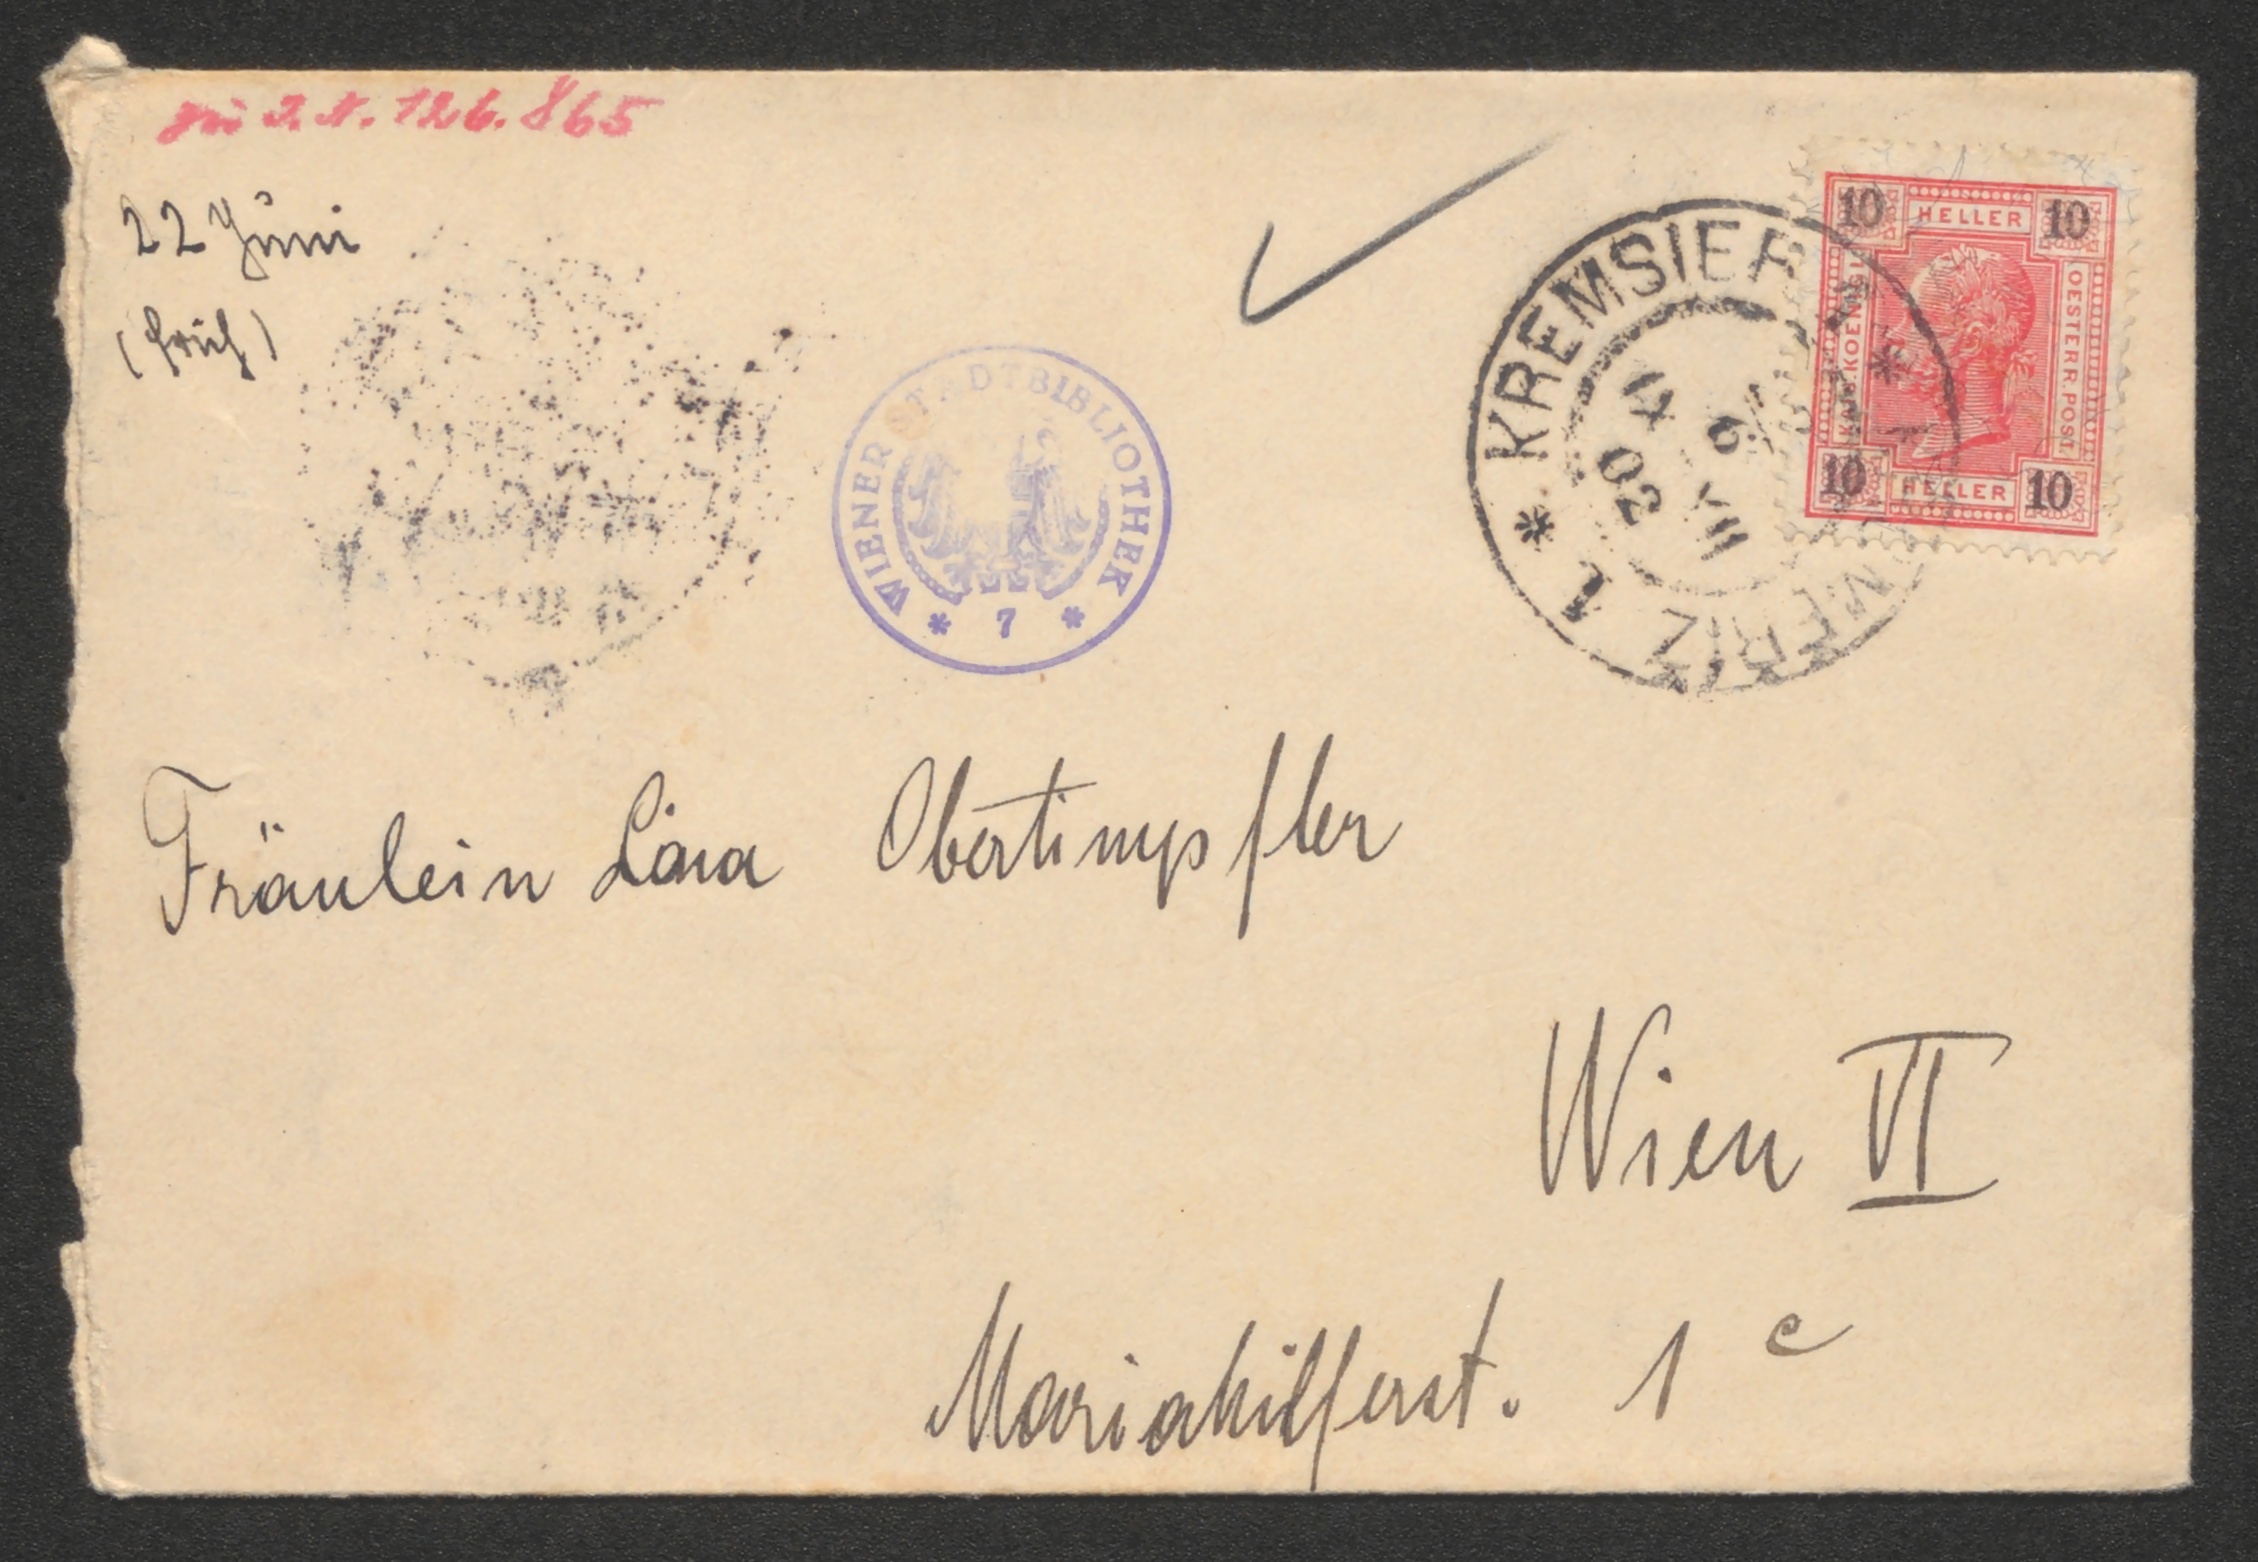 zu I.N. 126.865
22 Juni
(früh)
WIENER STADTBIBLIOTHEK
* 7 *
* KREMSIER 1 *
KROMĚŘÍŽ 1
02
10 HELLER 10
KAIS. KOENIGL.
OESTERR. POST.
10 HELLER 10
Fräulein Lina Obertimpfler
Wien VI
Mariahilferst. 1 c